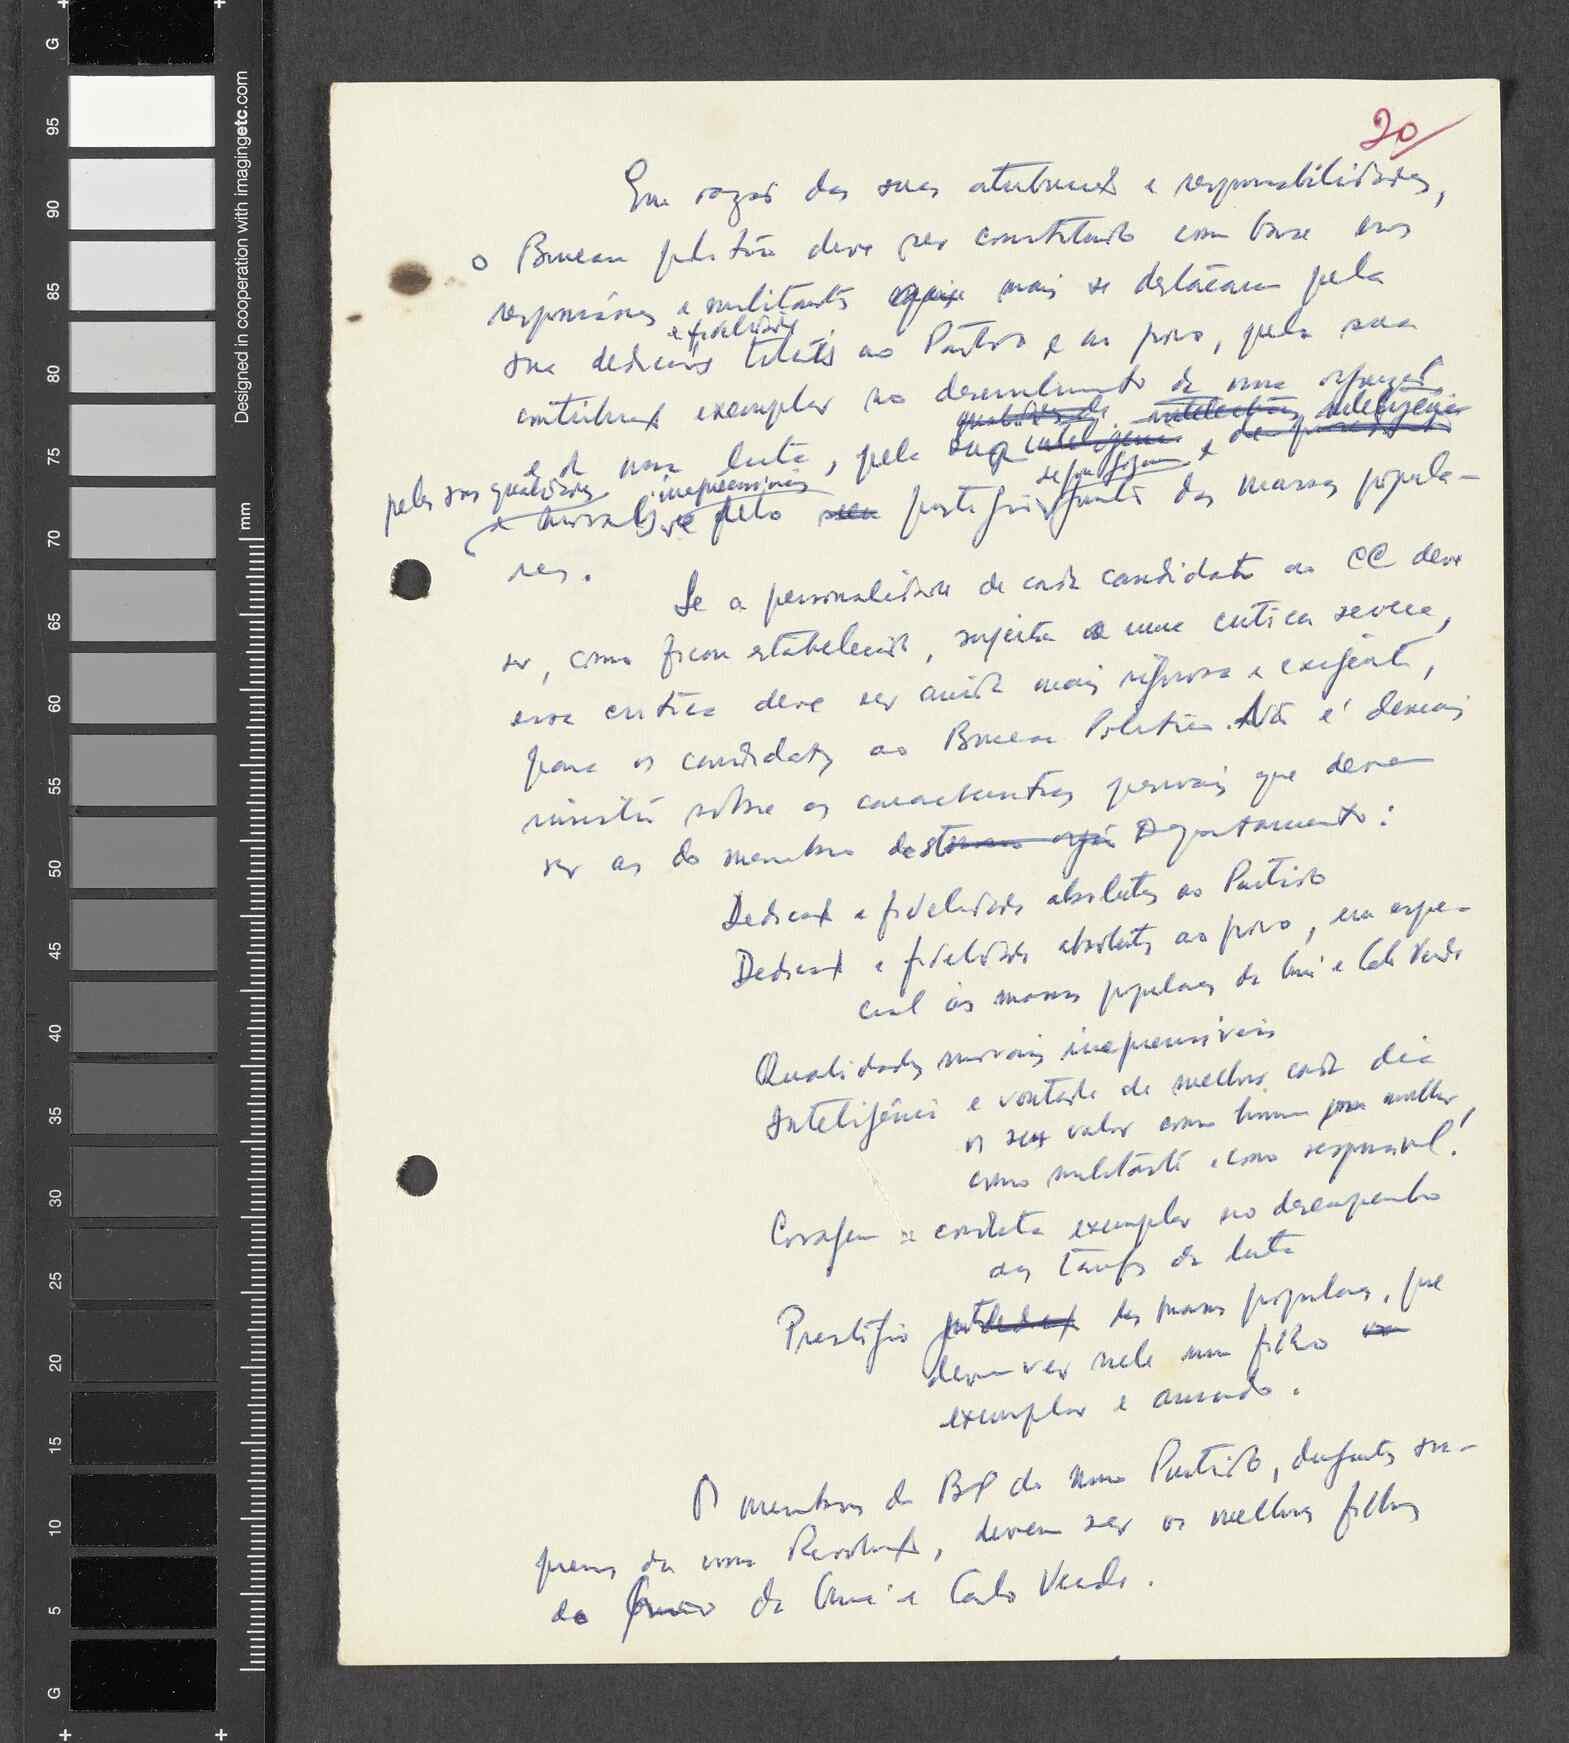 20
Em razão das suas atribuições e responsabilidades,
o Bureau político deve ser constituído com base nos
responsáveis e militantes que mais se destacam pela
e fidelidade
sua dedicação totais ao Partido e ao povo, pela sua
contribuição exemplar no desenvolvimento da nossa
e da nossa luta, pela sua inteligência e
pelas suas qualidades irrepreensíveis de que gozam
e morais e pelo seu prestígio junto das massas popula-
res.
Se a personalidade de cada candidato ao CC deve
ser, como ficou estabelecido, sujeita a uma crítica severa,
essa crítica deve ser ainda mais rigorosa e exigente,
para os candidatos ao Bureau Político. Não é demais
insistir sobre as características pessoais que devem
ser as do membro deste Departamento:
Dedicação e fidelidade absolutas ao Partido
Dedicação e fidelidade absolutas ao povo, em espe-
cial às massas populares da Guiné e Cabo Verde
Qualidades morais irrepreensíveis
Inteligência e vontade de melhorar cada dia
o seu valor como homem ou mulher,
como militante e como responsável.
Coragem e conduta exemplar no desempenho
das tarefas da luta
Prestígio junto das massas populares, que
devem ver nele um filho
exemplar e amado.
Os membros do BP do nosso Partido, dirigentes su-
premos da nossa Revolução, devem ser os melhores filhos
do povo da Guiné e Cabo Verde.
95
90
85
80
75
70
65
60
55
50
45
40
35
30
25
20
15
10
5
G
G
mm
Designed in cooperation with imagingetc.com